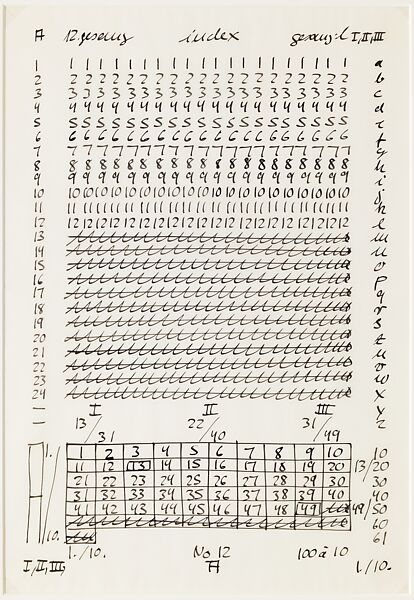 A 12.gesang index gesang: I, II, III
1 1 1 1 1 1 1 1 1 1 1 1 1 1 1 1 1 1 1 1 a
2 2 2 2 2 2 2 2 2 2 2 2 2 2 2 2 2 2 2 2 b
3 3 3 3 3 3 3 3 3 3 3 3 3 3 3 3 3 3 3 3 c
4 4 4 4 4 4 4 4 4 4 4 4 4 4 4 4 4 4 4 4 d
5 5 5 5 5 5 5 5 5 5 5 5 5 5 5 5 5 5 5 5 e
6 6 6 6 6 6 6 6 6 6 6 6 6 6 6 6 6 6 6 6 f
7 7 7 7 7 7 7 7 7 7 7 7 7 7 7 7 7 7 7 7 g
8 8 8 8 8 8 8 8 8 8 8 8 8 8 8 8 8 8 8 8 h
9 9 9 9 9 9 9 9 9 9 9 9 9 9 9 9 9 9 9 9 i
10 10 10 10 10 10 10 10 10 10 10 10 10 10 10 10 10 10 10 10 j
11 11 11 11 11 11 11 11 11 11 11 11 11 11 11 11 11 11 11 11 k
12 12 12 12 12 12 12 12 12 12 12 12 12 12 12 12 12 12 12 12 l
13 m
14 n
15 o
16 p
17 q
18 r
19 s
20 t
21 u
22 v
23 w
24 x
— I II III y
— 13/31 22/40 31/49 z
1. 1 2 3 4 5 6 7 8 9 10 10
11 12 13 14 15 16 17 18 19 20 13/20
21 22 23 24 25 26 27 28 29 30 30
31 32 33 34 35 36 37 38 39 40 40
41 42 43 44 45 46 47 48 49 49/50
60
10. 61
I, II, III, 1./10. No 12 A 100 à 10 1./10.